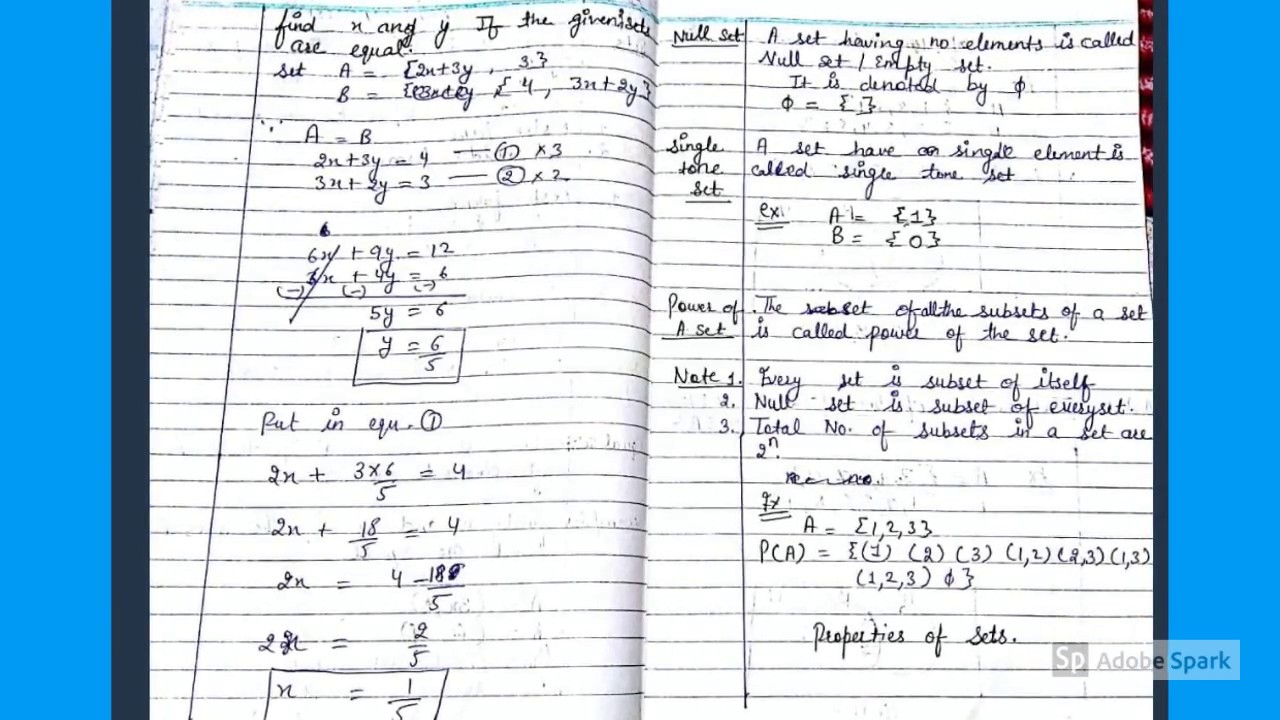 find x and y If the given sets
are equal.
set A = {2x+3y , 3}
B = { 4 , 3x+2y}
∵ A = B
2x+3y = 4 — ① ×3
3x+2y = 3 — ② ×2
6
6x + 9y = 12
6x + 4y = 6
(-) (-) (-)
5y = 6
y = 6/5
Put in equ. ①
2x + 3×6/5 = 4
2x + 18/5 = 4
2x = 4 - 18/5
2x = 2/5
x = 1/5
Null Set A set having no elements is called
Null set / Empty set.
It is denoted by φ.
φ = { }
Single A set have on single element is
tone called single tone set
set
ex. A = {1}
B = {0}
Power of . The set of all the subsets of a set
A set is called power of the set.
Note 1. Every set is subset of itself
2. Null set is subset of every set.
3. Total No. of subsets in a set are
2ⁿ.
Ex
A = {1,2,3}
P(A) = {(1) (2) (3) (1,2) (2,3) (1,3)
(1,2,3) φ}
Properties of sets.
Sp Adobe Spark